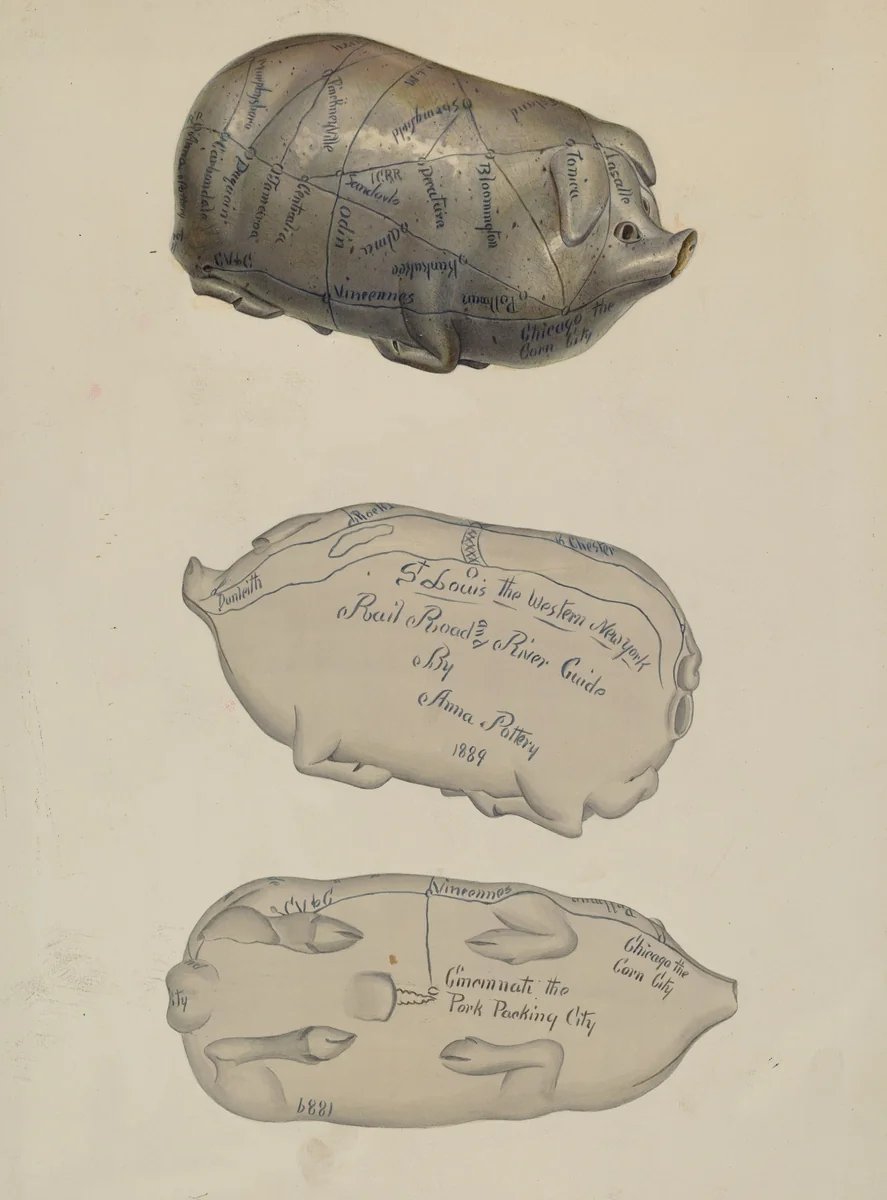 Murphysboro
Pinckneyville
Springfield
Anna Pottery
Carbondale
Duquoin
Tamaroa
Centralia
ICRR
Sandovlo
Odin
Decatura
Bloomington
Tonica
Lasalle
Alma
Kankakee
Vincennes
Pullman
Chicago the
Corn City
Rock
Chester
Dunleith
St Louis the Western New york
Rail Road and River Guide
By
Anna Pottery
1889
Vincennes
Pullman
Chicago the
Corn City
Cincinnati the
Pork Packing City
ity
1889